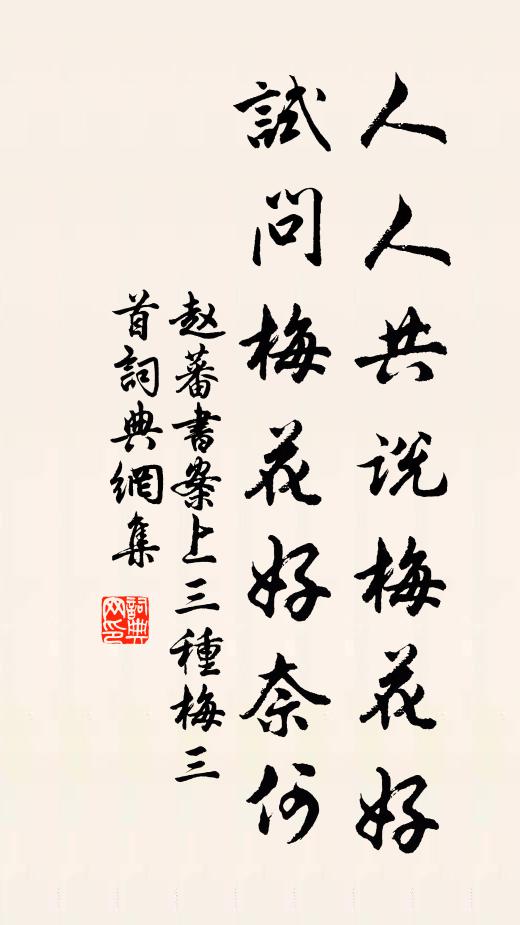 人人共说梅花好
試問梅花好奈何
赵蕃書案上三種梅三
首詞典網集
詞典网印